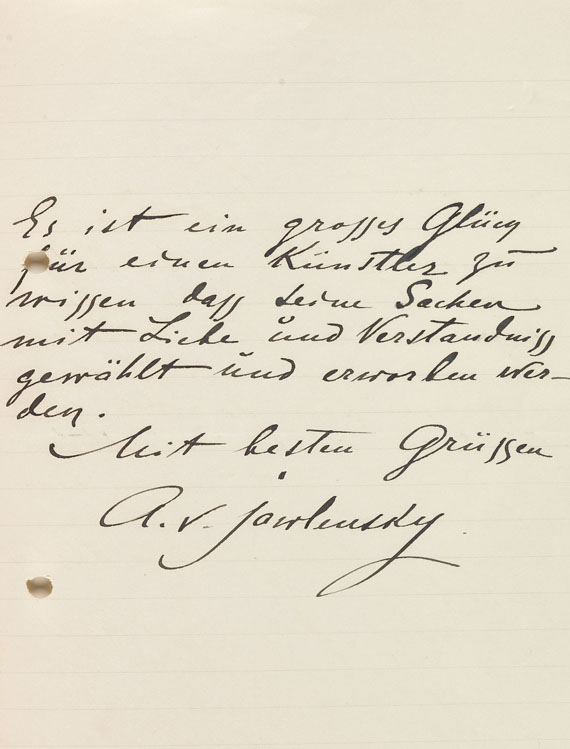 Es ist ein grosses Glück
für einen Künstler zu
wissen dass seine Sachen
mit Liebe und Verständniss
gewählt und erworben wer-
den.
Mit besten Grüssen
A. v. Jawlensky